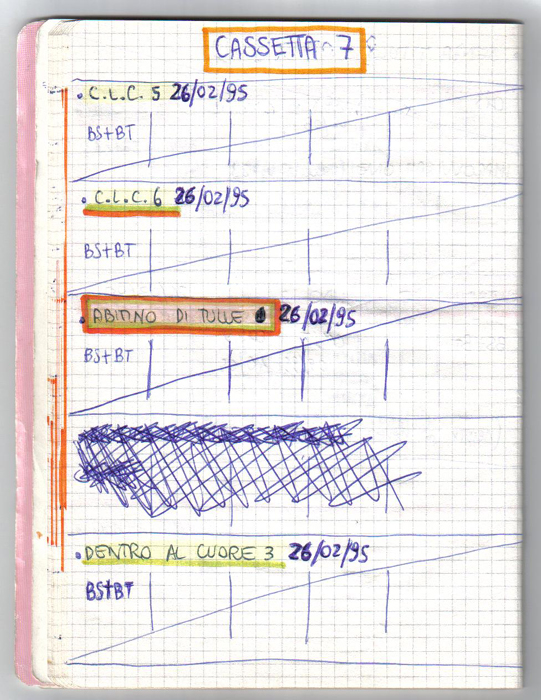 CASSETTA 7
• C.L.C. 5 26/02/95
BS+BT
• C.L.C. 6 26/02/95
BS+BT
• ABITINO DI TULLE 26/02/95
BS+BT
• DENTRO AL CUORE 3 26/02/95
BS+BT